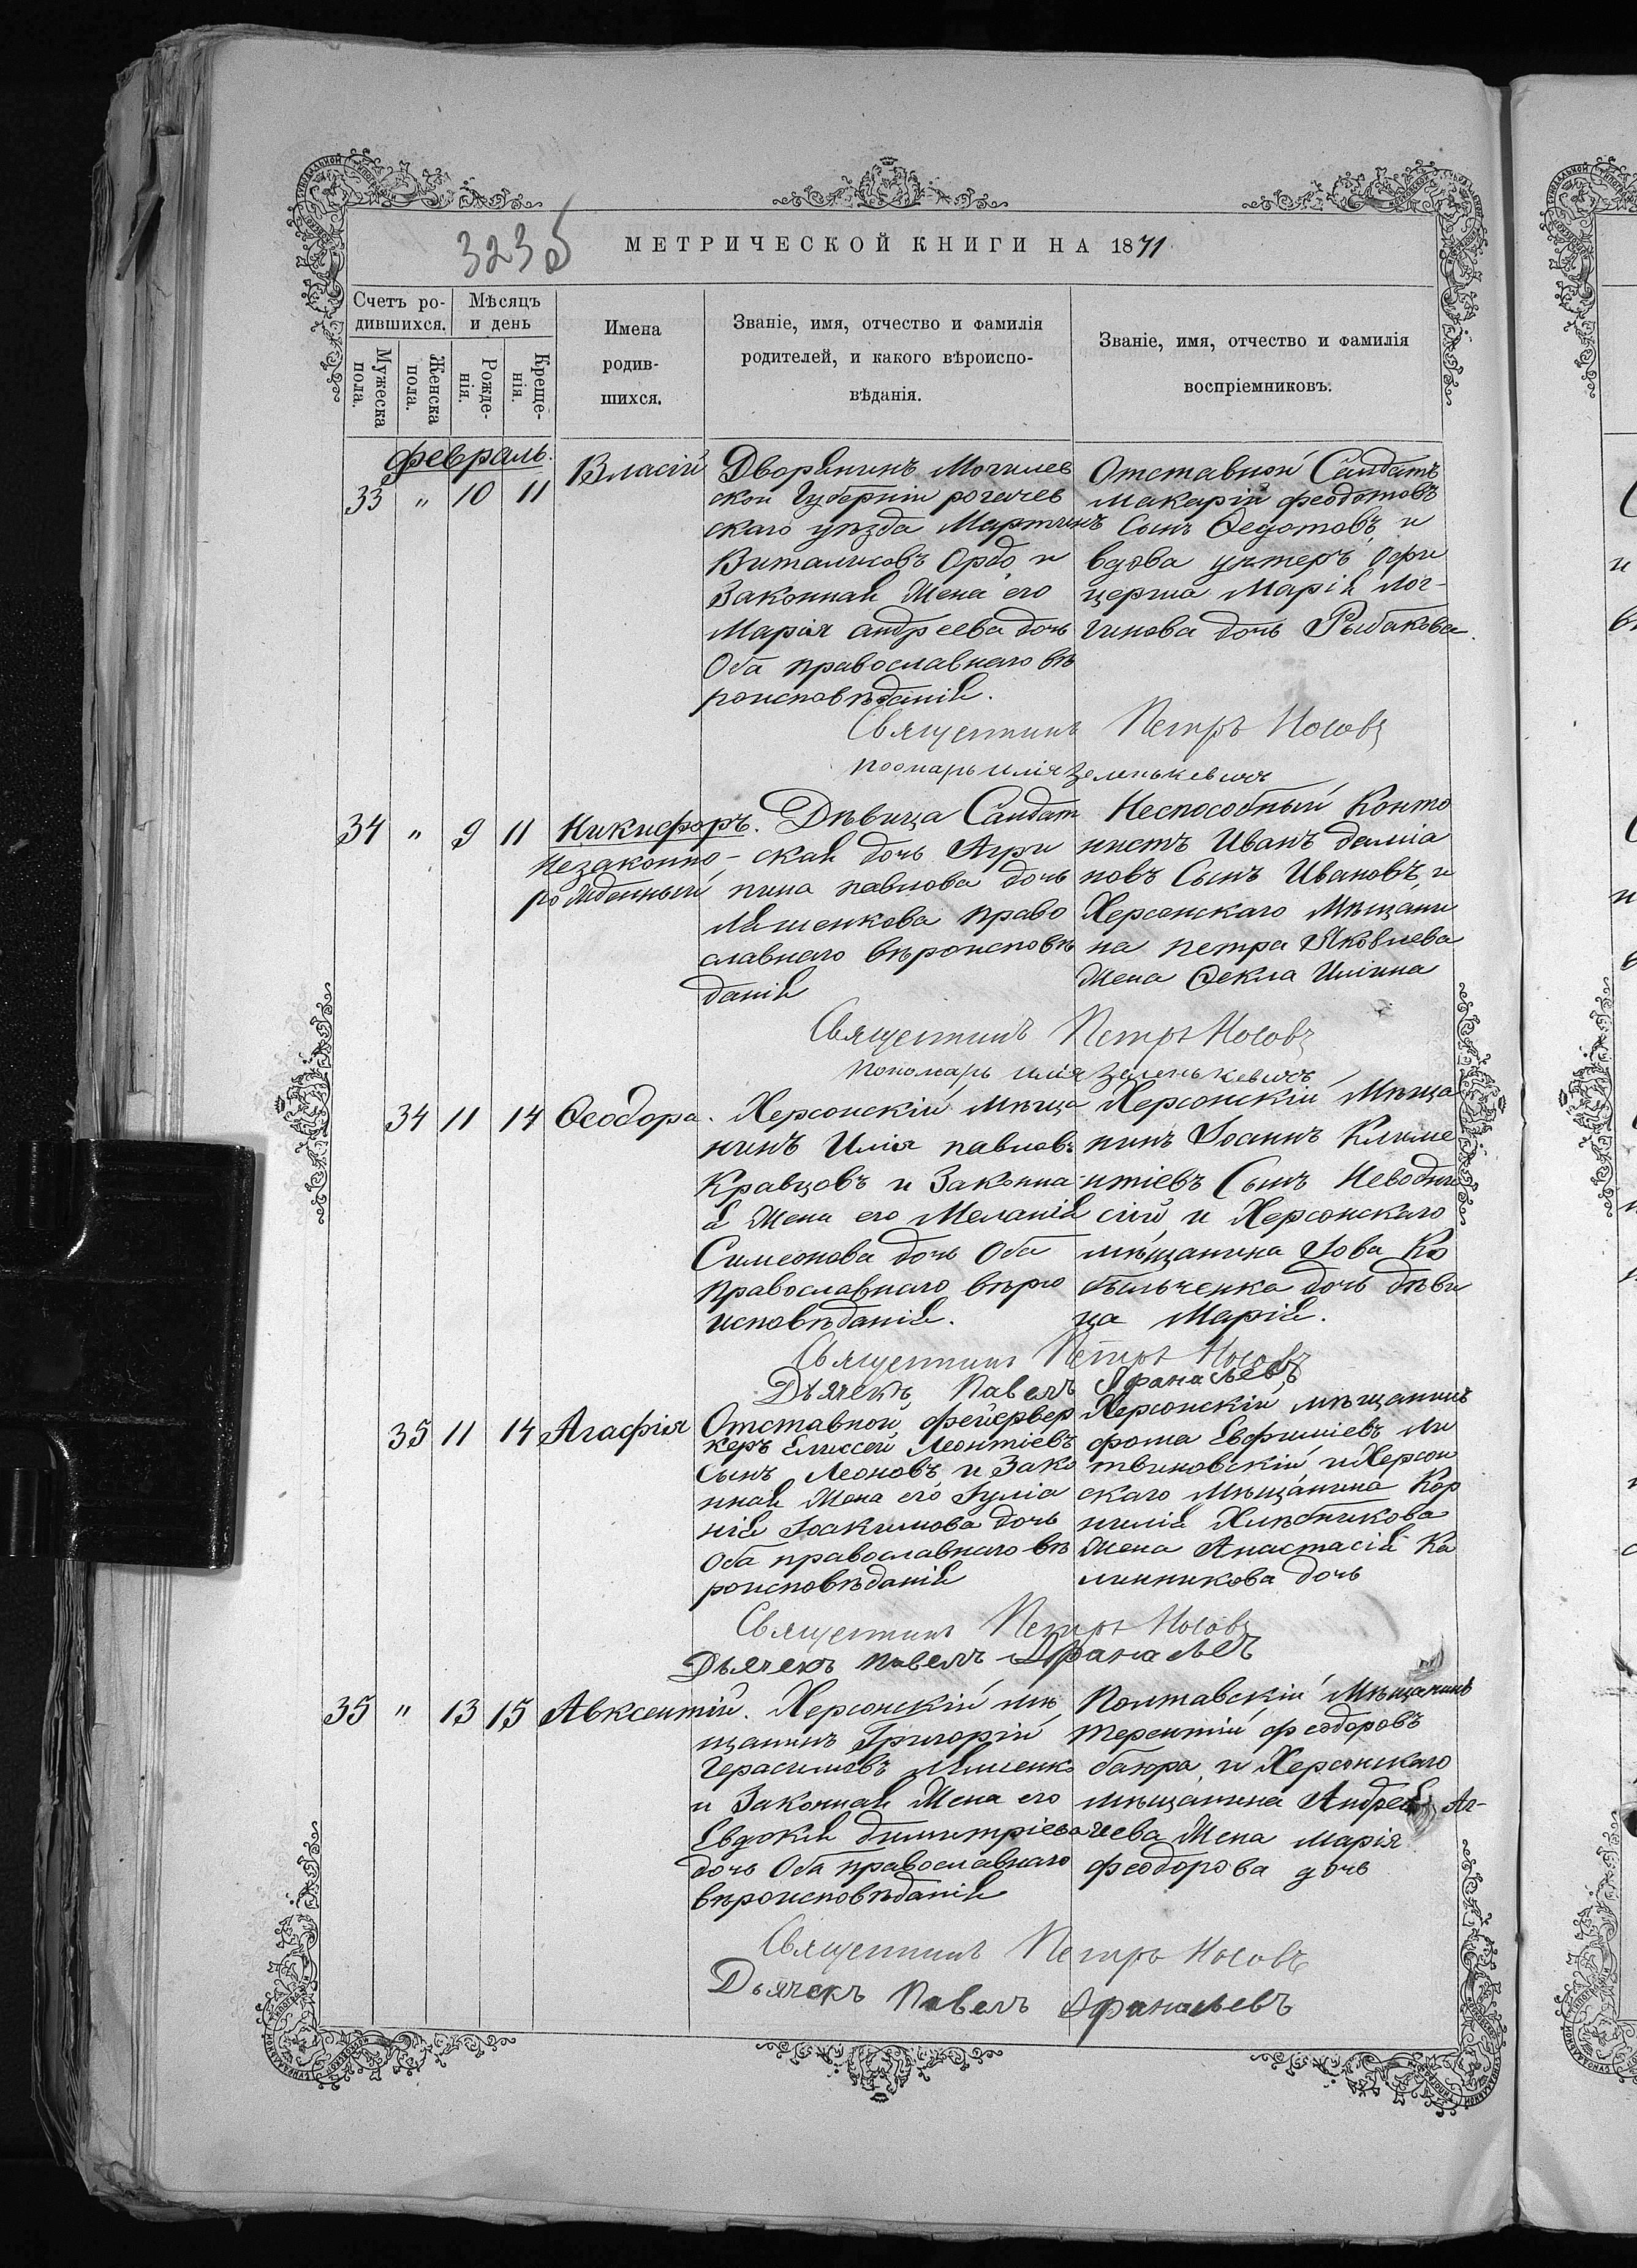 323 об
МЕТРИЧЕСКОЙ КНИГИ НА 1871
Счетъ ро-
дившихся.
Мѣсяцъ
и день
Мужеска
пола.
Женска
пола.
Рожде-
нія.
Креще-
нія.
Имена
родив-
шихся.
Званіе, имя, отчество и фамилія
родителей, и какого вѣроиспо-
вѣданія.
Званіе, имя, отчество и фамилія
воспріемниковъ.
Февраль.
33 " 10 11
Власій
Дворянинъ Могилев
ской Губерніи рогачев
скаго уѣзда Мартинъ
Виталисовъ Ордо, и
Законная Жена его
Марія андреева дочь
Оба православнаго вѣ
роисповѣданія.
Отставной Салдатъ
Макарій феодотовъ
Сынъ Ѳедотовъ, и
вдова унтеръ офи
церша Марія Лог-
гинова дочь Рыбакова.
Священникъ Петръ Носовъ
пономарь илія Зеленькевичъ
34 " 9 11
Никифоръ.
Незаконно-
рожденный
Дѣвица Салдат
ская дочь Агри
пина павлова дочь
Ляшенкова право
славнаго вѣроисповѣ
данія
Неспособный Канто
нистъ Иванъ даміа
новъ Сынъ Ивановъ, и
Херсонскаго Мѣщани
на петра Яковлева
Жена Ѳекла Илiина
Священникъ Петръ Носовъ
Пономарь илія Зеленькевичъ
34 11 14
Ѳеодора.
Херсонскій Мѣща
нинъ Илія павловъ
Кравцовъ и Законна
я Жена его Меланія
Симеонова дочь Оба
православнаго вѣро
исповѣданія.
Херсонскій Мѣща
нинъ Іоаннъ Климе
нтіевъ Сынъ Неводни
сій, и Херсонскаго
мѣщанина Іова Ко
быльченка дочь дѣви
ца Марія.
Священникъ Петръ Носовъ
Дьячекъ Павелъ Афанасьевъ
35 11 14
Агафія
Отставной фейервер
керъ Елисей Леонтіевъ
Сынъ Леоновъ и Зако
нная Жена его Іуліа
нія Іоакимова дочь
Оба православнаго вѣ
роисповѣданія
Херсонскій мѣщанинъ
фома Евфиміевъ Ли
твиновскій и Херсон
скаго Мѣщанина Кор
нилія Хлѣбникова
Жена Анастасія Ка
линникова дочь
Священникъ Петръ Носовъ
Дьячекъ Павелъ Афанасьевъ
35 " 13 15
Авксентій.
Херсонскій мѣ
щанинъ Григорій
Герасимовъ Ляшенко
и Законная Жена его
Евдокія димитріева
дочь Оба православнаго
вѣроисповѣданія
Полтавскій Мѣщанинъ
терентій феодоровъ
баюра, и Херсонскаго
мѣщанина Андрея Ар-
Жена Марія
феодорова дочь
Священникъ Петръ Носовъ
Дьячекъ Павелъ Афанасьевъ